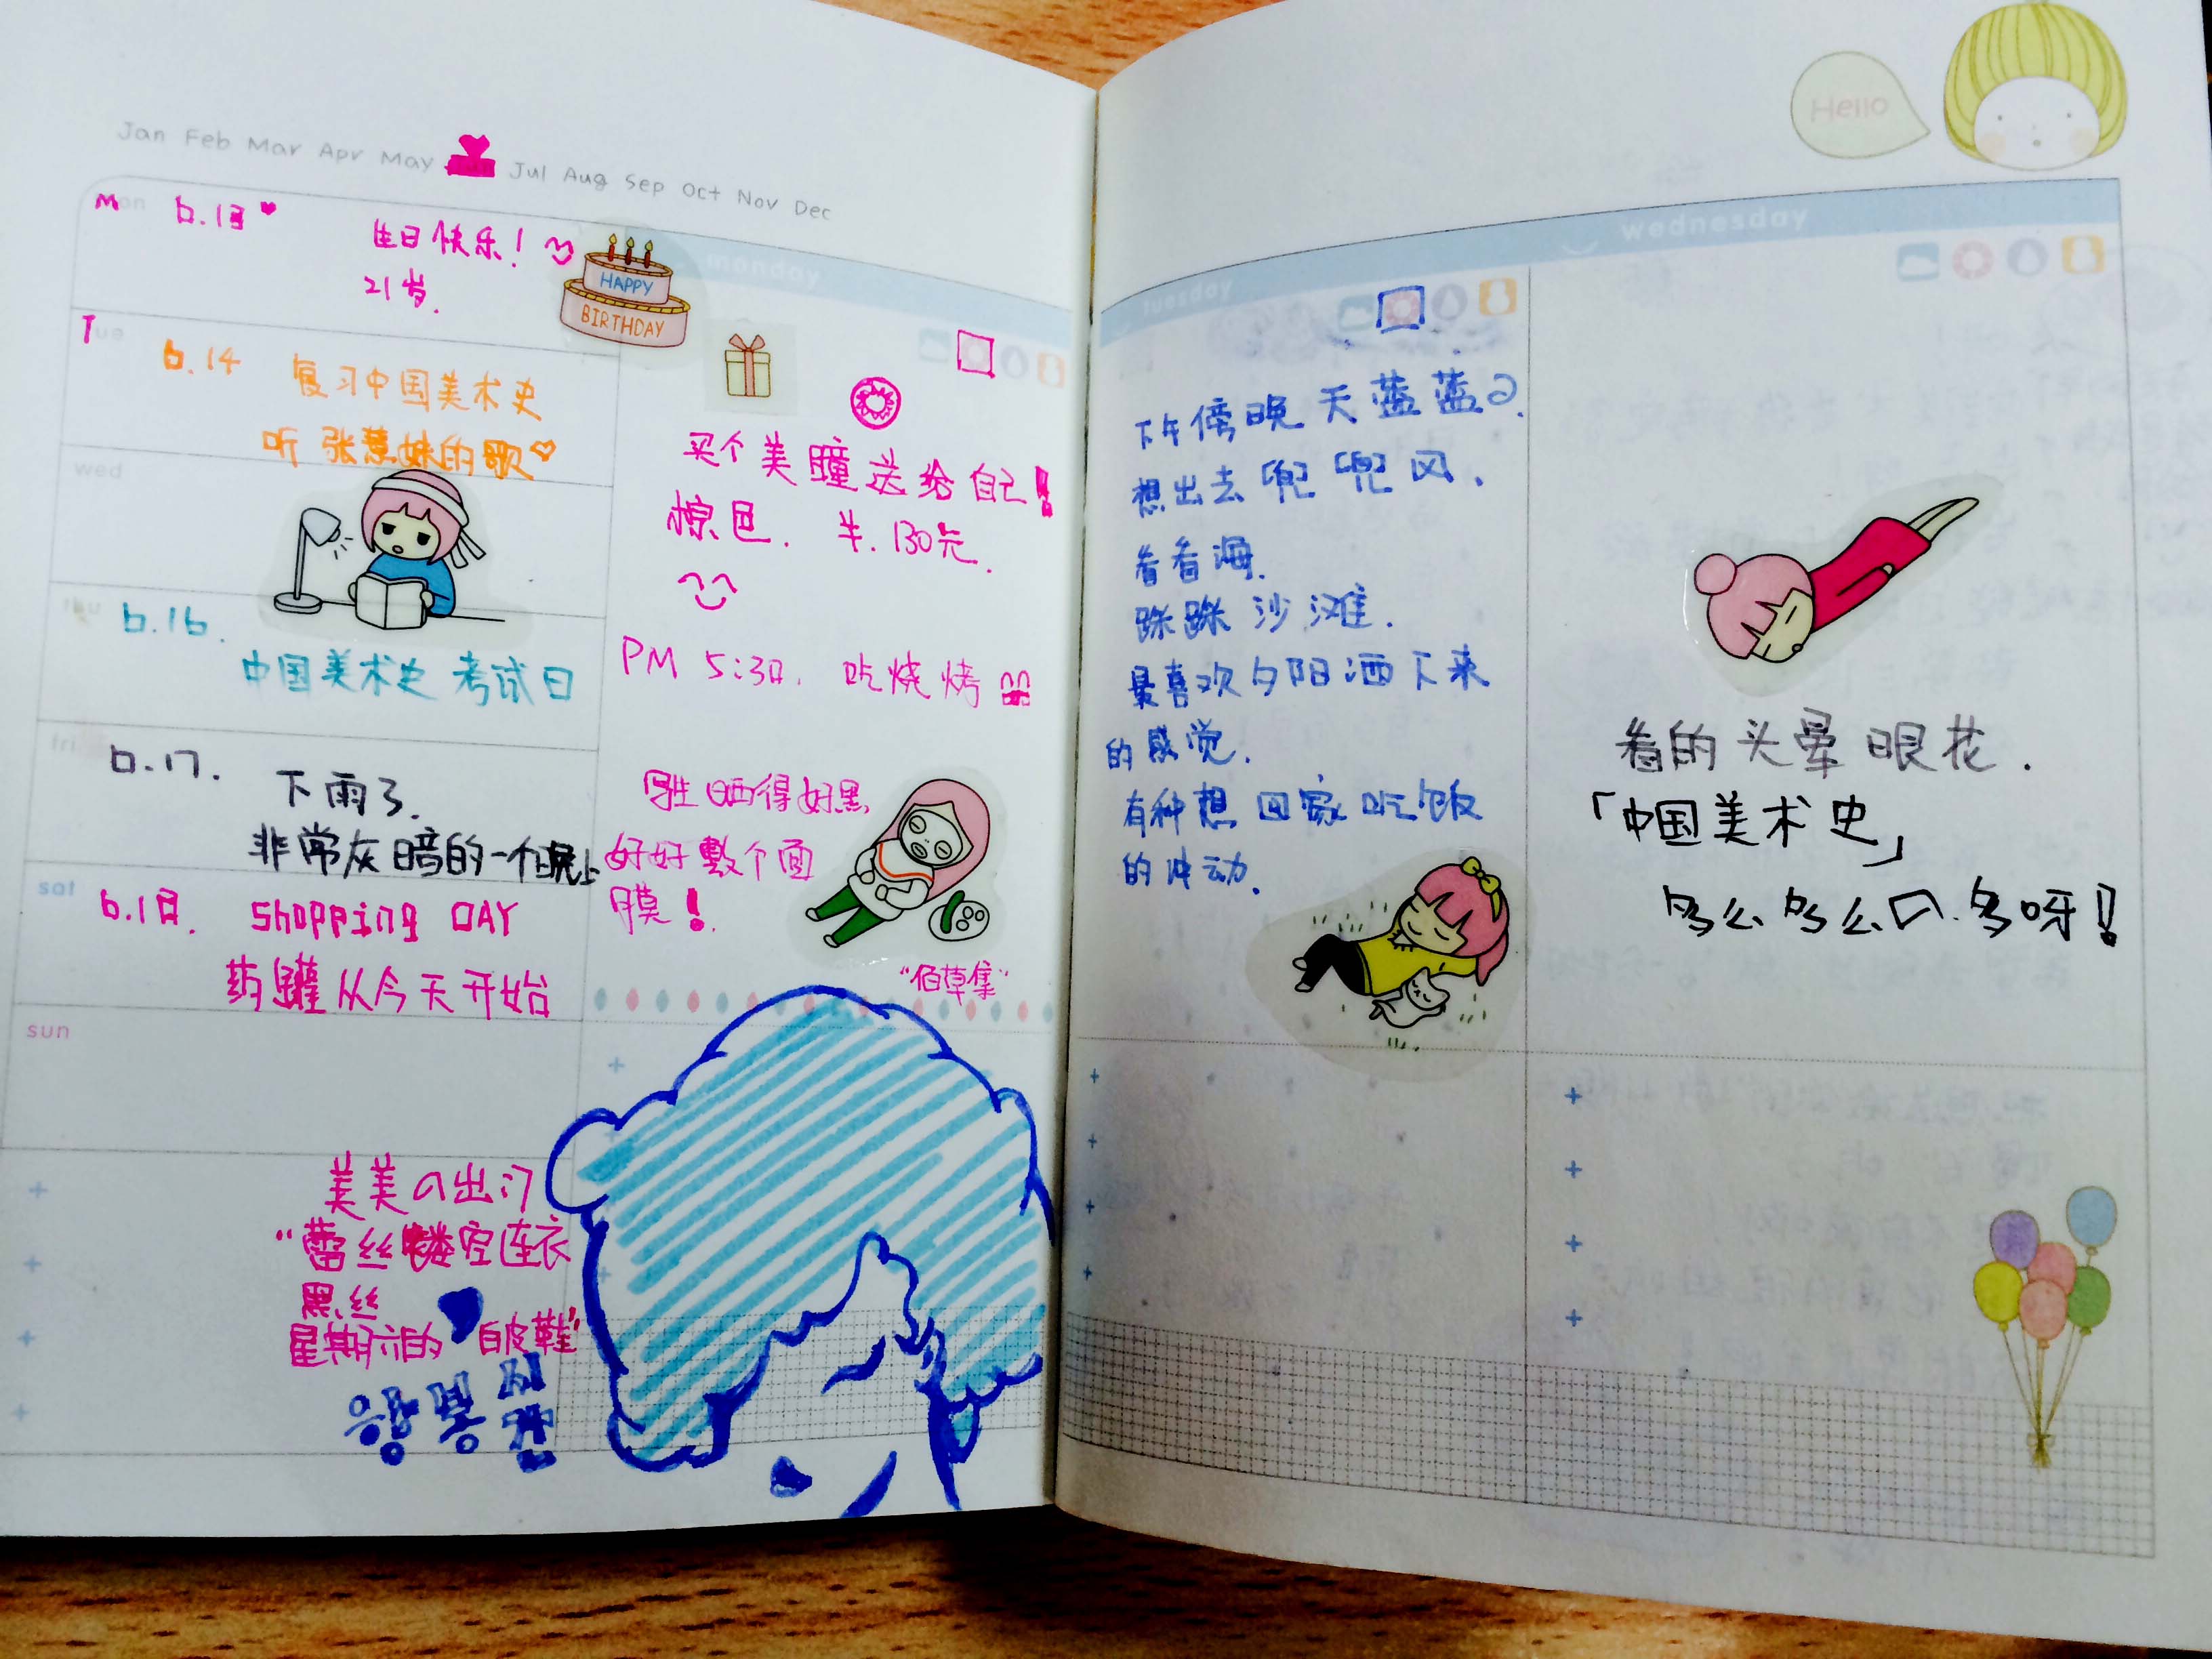 Jan Feb Mar Apr May Jul Aug Sep Oct Nov Dec
Mon 6.13
生日快乐！
21岁.
HAPPY
BIRTHDAY
Tue
6.14 复习中国美术史
听 张慧妹的歌
wed
thu 6.16.
中国美术史 考试日
fri 6.17.
下雨了.
非常灰暗的一个晚上
sat 6.18. Shopping DAY
药罐从今天开始
sun
美美の出门
"蕾丝镂空连衣
黑丝
星期六的 白皮鞋"
monday
买个美瞳送给自己！
棕色. 半. 130元.
PM 5:30. 吃烧烤
晒得好黑
好好敷个面
膜！
"佰草集"
tuesday
下午傍晚天蓝蓝の.
想出去兜兜风、
看看海.
踩踩沙滩.
最喜欢夕阳洒下来
的感觉.
有种想回家吃饭
的冲动.
Hello
wednesday
看的头晕眼花.
「中国美术史」
多么多么の.多呀！